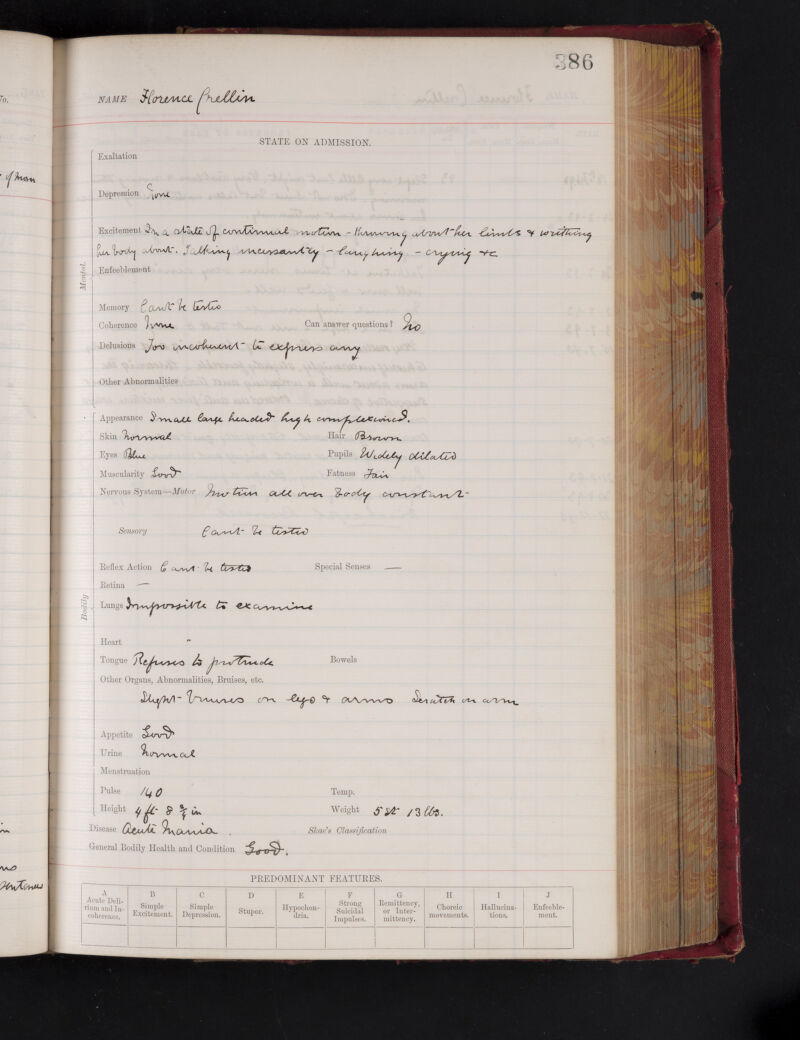 386
NAME Florence Crellin
STATE ON ADMISSION.
Exaltation
Depression None
Excitement In a state of continual motion - throwing about her limbs & writhing
her body about. Talking incessantly - laughing - crying &c
Mental.
Enfeeblement
Memory Can't be tested
Coherence None Can answer questions? No
Delusions Too incoherent to express any
Other Abnormalities
Appearance Small large headed high complexioned.
Skin Normal Hair Brown
Eyes Blue Pupils Widely dilated
Muscularity Good Fatness Fair
Nervous System—Motor Motion all over body constant
Sensory Can't be tested
Reflex Action Can't be tested Special Senses —
Retina —
Bodily
Lungs Impossible to examine
Heart "
Tongue Refuses to protrude Bowels
Other Organs, Abnormalities, Bruises, etc.
Slight bruises on legs & arms Scratch on arm
Appetite Good
Urine Normal
Menstruation
Pulse 140 Temp.
Height 4 ft 8 3/4 in Weight 5 st 13 lbs.
Disease Acute Mania. Skae's Classification
General Bodily Health and Condition Good.
PREDOMINANT FEATURES.
A B C D E F G H I J
Acute Deli-
rium and In-
coherence.
Simple
Excitement.
Simple
Depression.
Stupor.
Hypochon-
dria.
Strong
Suicidal
Impulses.
Remittency,
or Inter-
mittency.
Choreic
movements.
Hallucina-
tions.
Enfeeble-
ment.